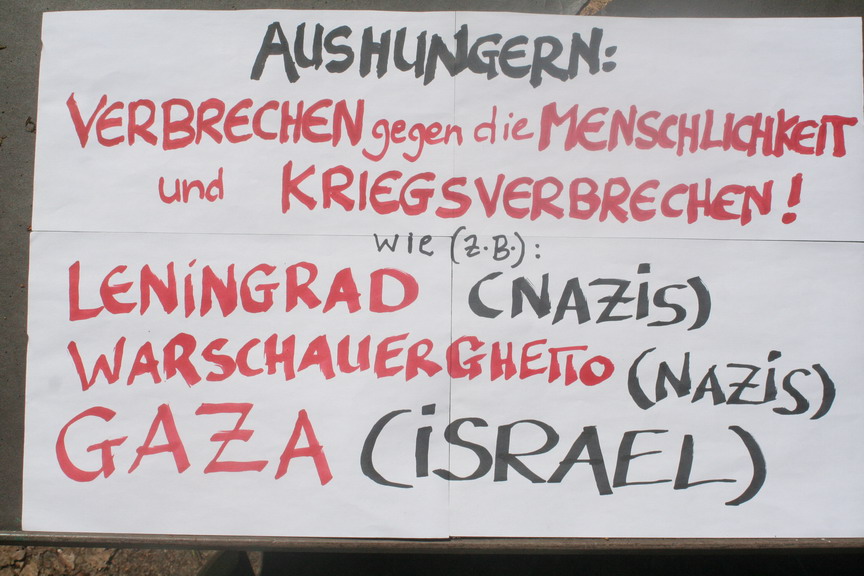 AUSHUNGERN:
VERBRECHEN gegen die MENSCHLICHKEIT
und KRIEGSVERBRECHEN!
WIE (Z.B.):
LENiNGRAD (NAZiS)
WARSCHAUER GHETTO (NAZiS)
GAZA (iSRAEL)